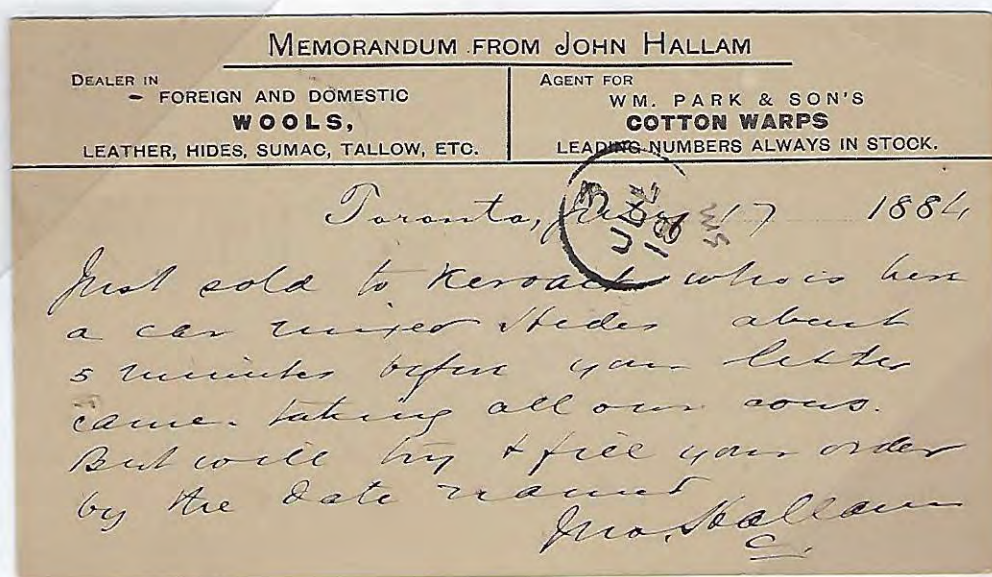 MEMORANDUM FROM JOHN HALLAM
DEALER IN
FOREIGN AND DOMESTIC
WOOLS,
LEATHER, HIDES, SUMAC, TALLOW, ETC.
AGENT FOR
WM. PARK & SON'S
COTTON WARPS
LEADING NUMBERS ALWAYS IN STOCK.
Toronto, 17 1884
Just sold to who is here
a car mixed Hides about
5 minutes before your letter
came. taking all our cows.
But will try & fill your order
by the date named
Jno. Hallam